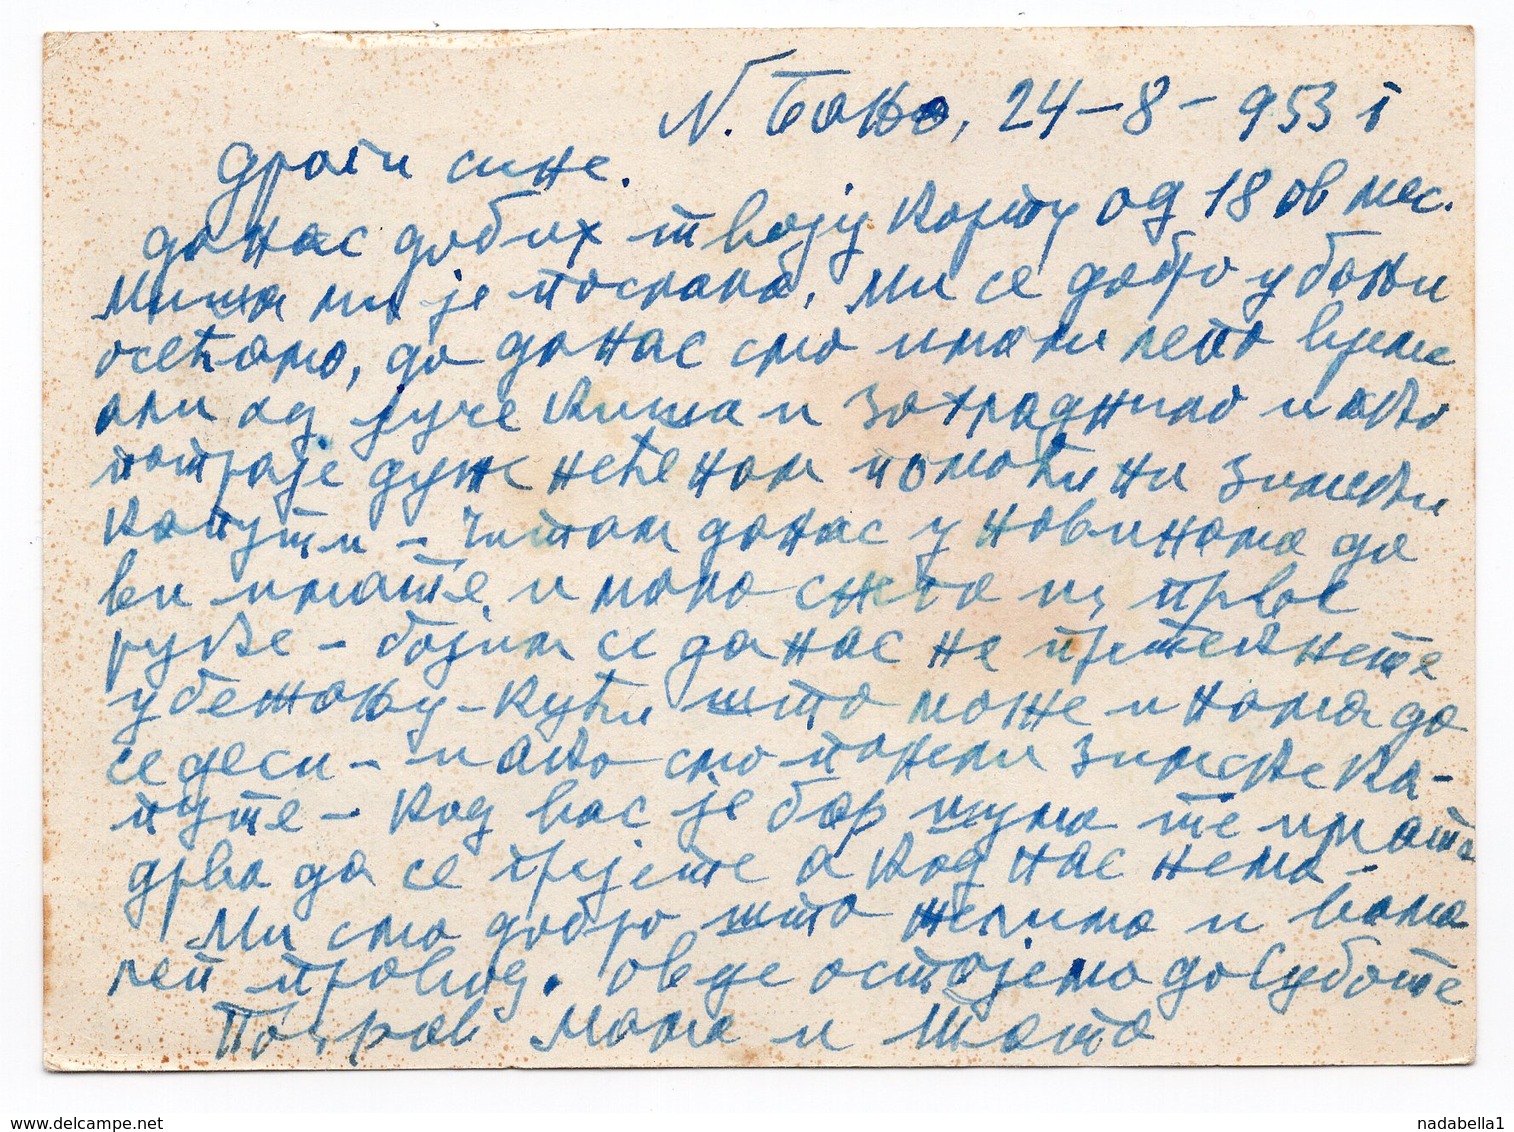 Н. Бања, 24-8-953 г
Драги сине.
данас добих твоју карту од 18 ов мес.
Миша ми је послала. Ми се добро у бањи
осећамо, до данас смо имали лепо време
али од јуче киша и захладнило и ако
потраје дуже неће нам помоћи ни зимски
капути - Читам данас у новинама да
ви имате и мало снега из прве
руке - бојим се да нас не претекнете
у бежању - кући што може и нама да
се деси - и ако смо понели зимске ка-
путе - код вас је бар шума те имате
дрва да се грејете а код нас нема -
Ми смо добро што желимо и вама
леп провод. Овде остајемо до Суботе
Поздрав Мама и Тата
nadabella1
www.delcampe.net